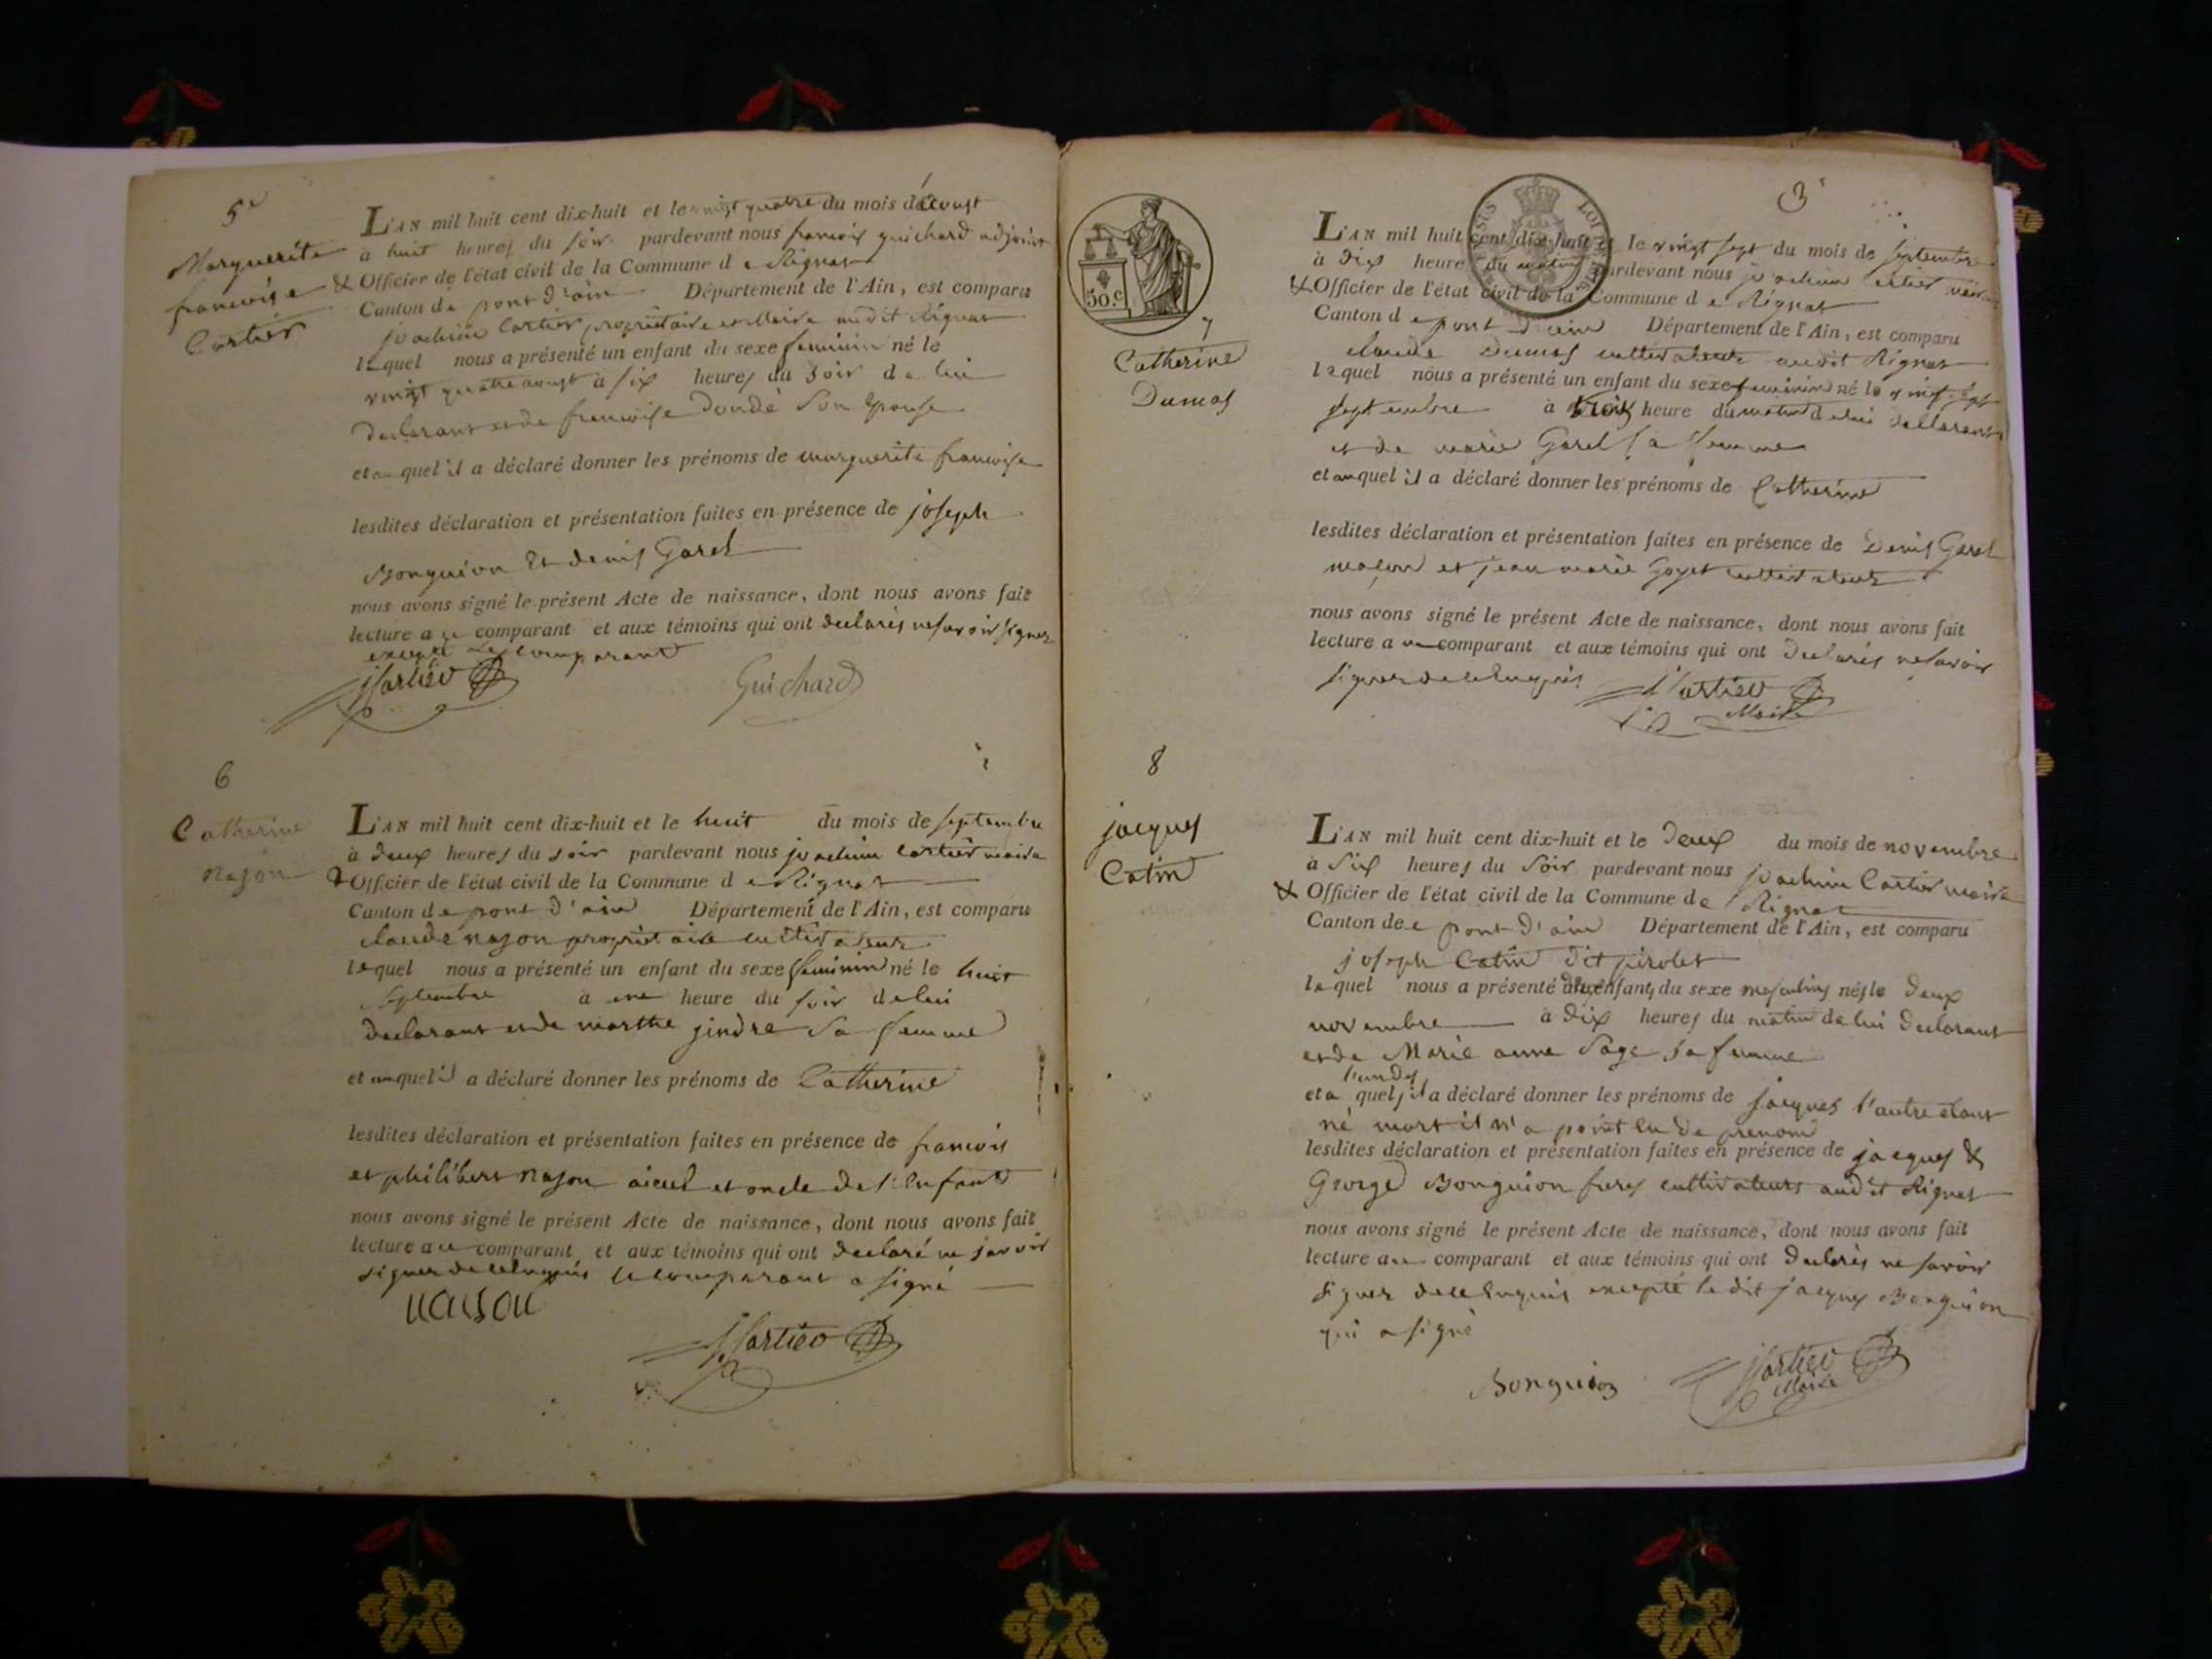 5e
Marguerite
francoise
Cartier
L'AN mil huit cent dix-huit et le vingt quatre du mois d'aoust
à huit heures du soir pardevant nous francois guichard adjoint
& Officier de l'état civil de la Commune de Rignat
Canton de pont d'ain Département de l'Ain, est comparu
joachim Cartier propriétaire et Maire audit Rignat
lequel nous a présenté un enfant du sexe feminin né le
vingt quatre aoust à six heures du soir de lui
declarant et de francoise Dondé son Epouse
et auquel il a déclaré donner les prénoms de marguerite francoise
lesdites déclaration et présentation faites en présence de joseph
Bonguion Et denis Garel
nous avons signé le présent Acte de naissance, dont nous avons fait
lecture a ce comparant et aux témoins qui ont declarés ne savoir signer
excepté Le comparant
JCartier Guichard
6
Catherine
nason
L'AN mil huit cent dix-huit et le huit du mois de septembre
à deux heures du soir pardevant nous joachim Cartier maire
& Officier de l'état civil de la Commune de Rignat
Canton de pont d'ain Département de l'Ain, est comparu
claude nason propriétaire cultivateur
lequel nous a présenté un enfant du sexe feminin né le huit
septembre à une heure du soir de lui
declarant et de marthe jindre sa femme
et auquel il a déclaré donner les prénoms de Catherine
lesdites déclaration et présentation faites en présence de francois
et philibert nason aieul et oncle de l'Enfant
nous avons signé le présent Acte de naissance, dont nous avons fait
lecture a ce comparant et aux témoins qui ont declaré ne savoir
signer de ce Enquis le comparant a signé
nason
JCartier
3e
LOI DE 1816
50.c
7
Catherine
Dumas
L'AN mil huit cent dix-huit et le vingt sept du mois de septembre
à dix heures du matin pardevant nous joachim Cartier maire
& Officier de l'état civil de la Commune de Rignat
Canton de pont d'ain Département de l'Ain, est comparu
claude Dumas cultivateur audit Rignat
lequel nous a présenté un enfant du sexe feminin né le vingt sept
septembre à trois heure du matin de lui declarant
et de marie Garel sa femme
et auquel il a déclaré donner les prénoms de Catherine
lesdites déclaration et présentation faites en présence de Denis Garel
maçon et jean marie Goyet cultivateur
nous avons signé le présent Acte de naissance, dont nous avons fait
lecture a ce comparant et aux témoins qui ont declarés ne savoir
signer de ce Enquis JCartier
Maire
8
jacques
Catin
L'AN mil huit cent dix-huit et le deux du mois de novembre
à six heures du soir pardevant nous joachim Cartier maire
& Officier de l'état civil de la Commune de Rignat
Canton de pont d'ain Département de l'Ain, est comparu
joseph Catin dit pirolet
lequel nous a présenté deux enfants du sexe masculins nés le deux
novembre à dix heures du matin de lui declarant
et de Marie anne Sage sa femme
l'un des
et a quels il a déclaré donner les prénoms de jacques l'autre etant
né mort il n'a point eu de prenom
lesdites déclaration et présentation faites en présence de jacques &
George Bonguion freres cultivateurs audit Rignat
nous avons signé le présent Acte de naissance, dont nous avons fait
lecture a ce comparant et aux témoins qui ont declarés ne savoir
signer de ce Enquis excepté le dit jacques Bonguion
qui a signé
Bonguion JCartier
Maire